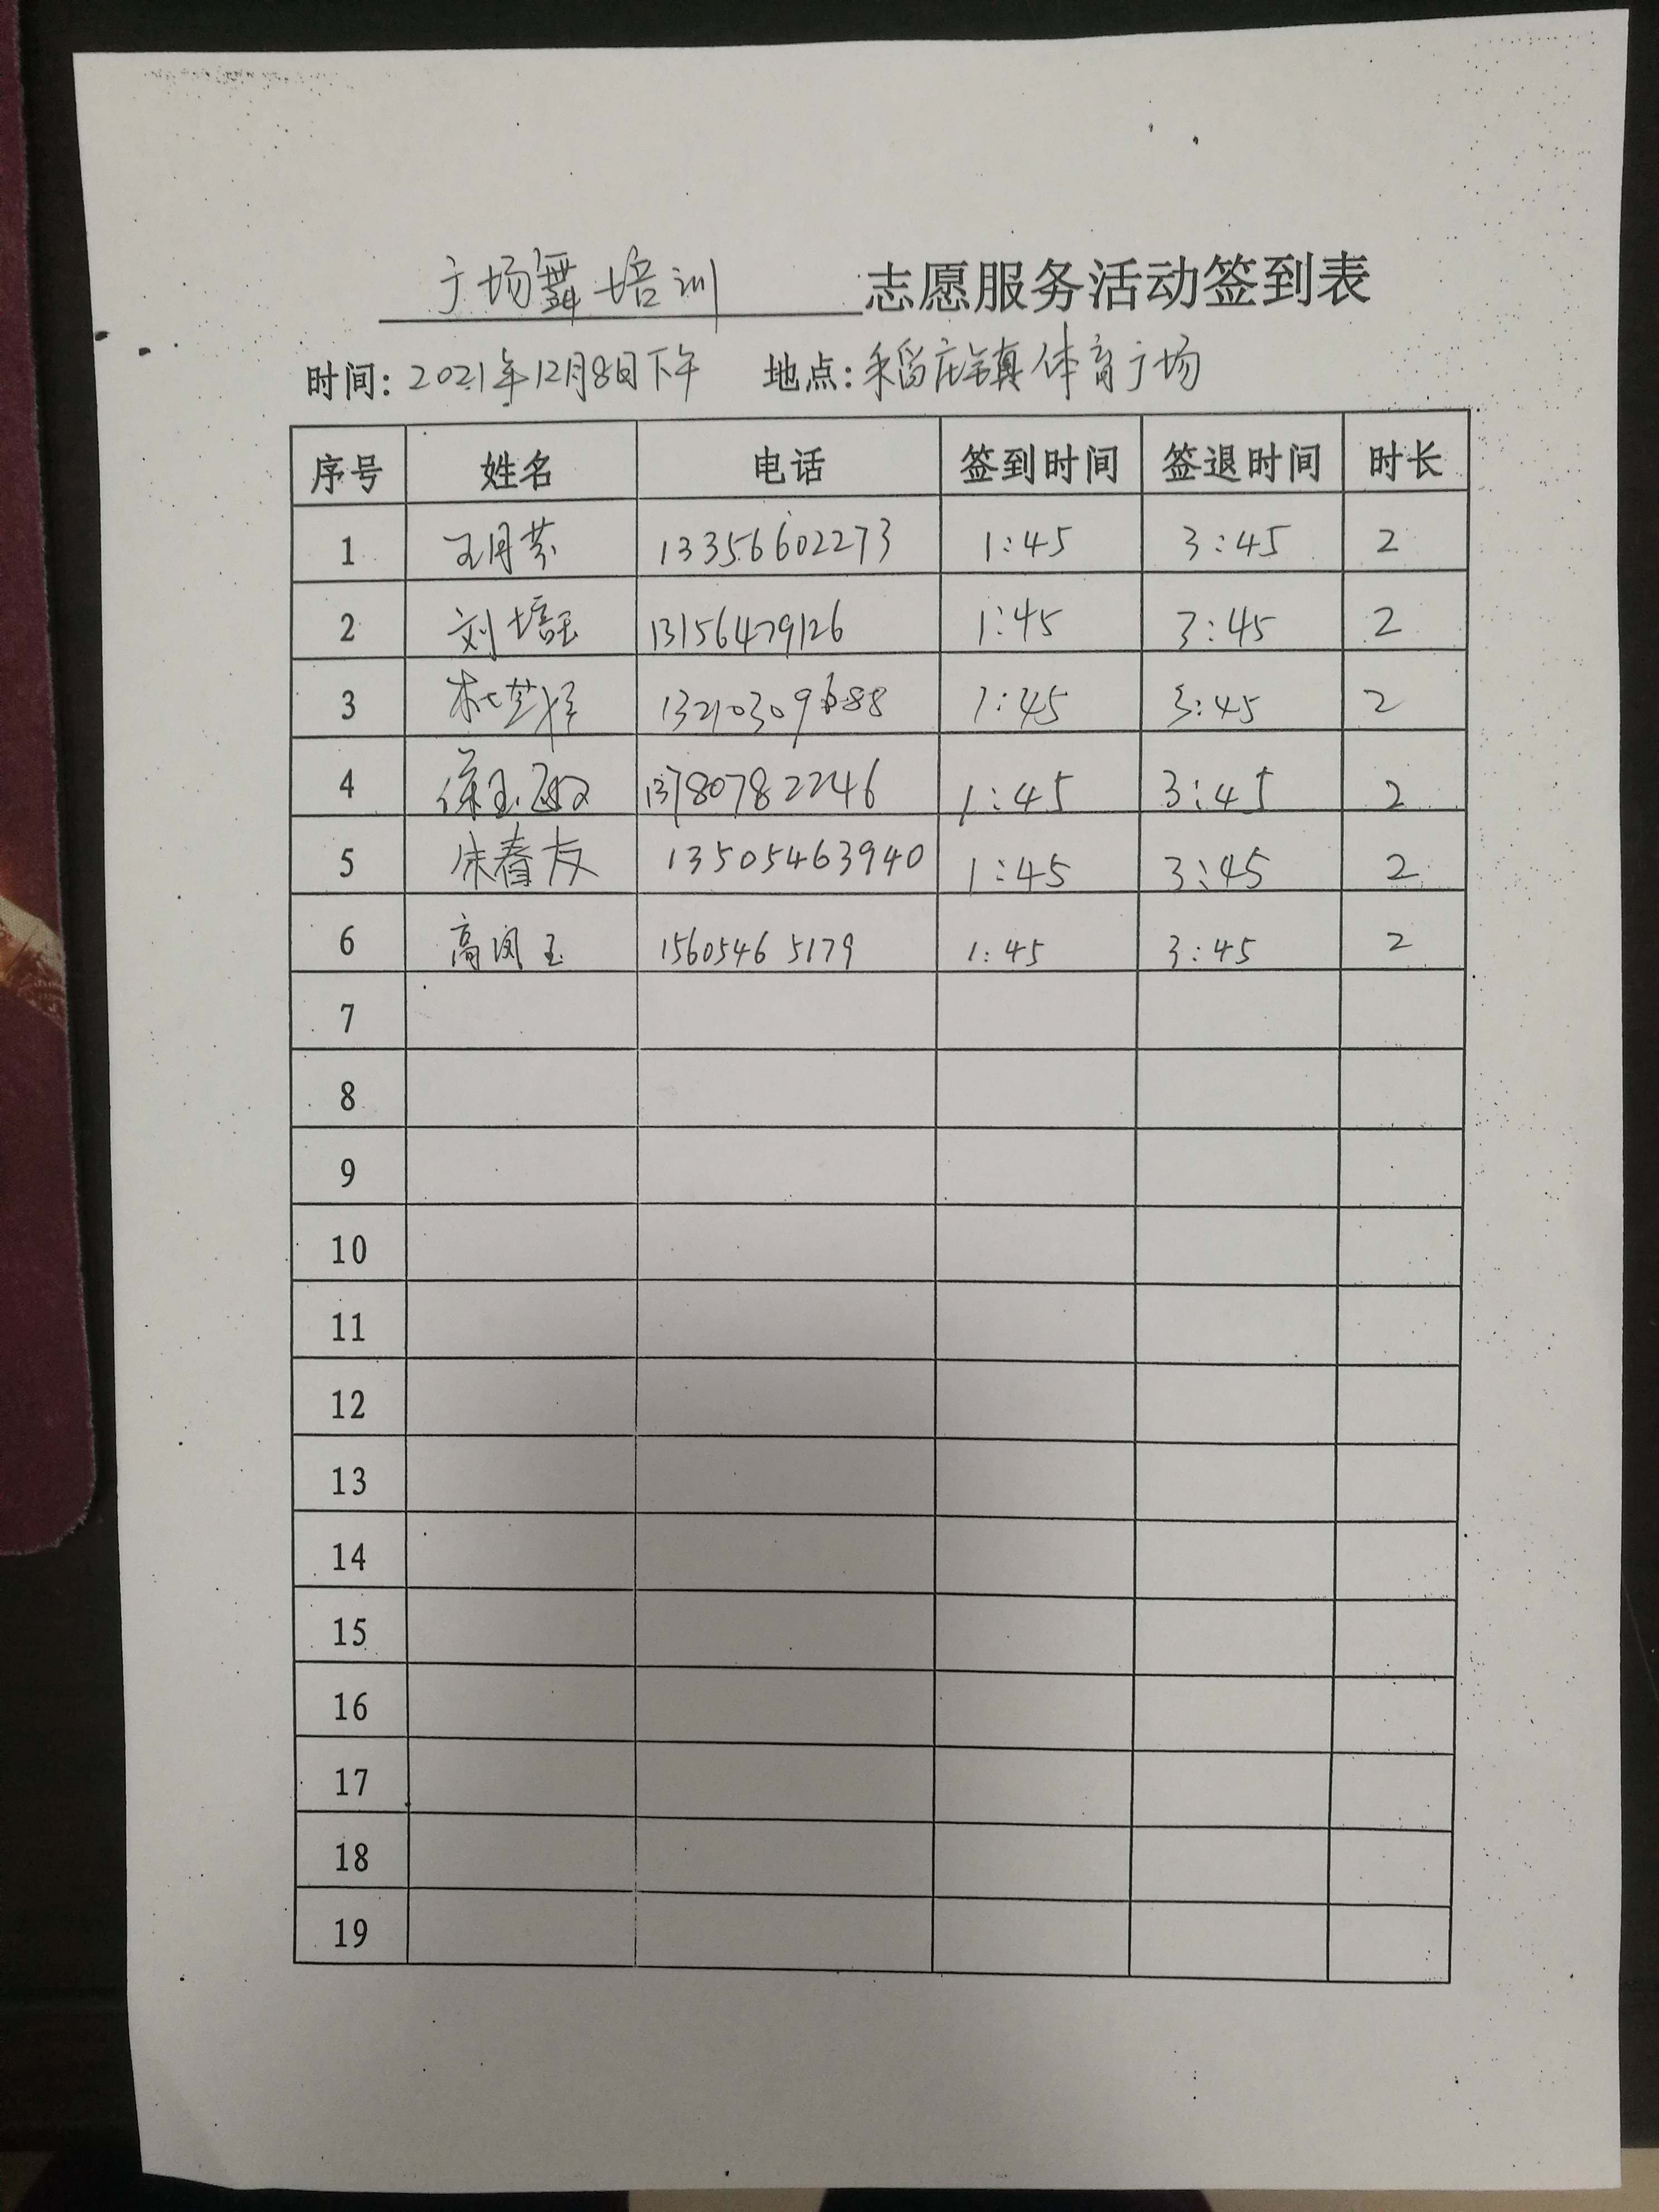 广场舞培训 志愿服务活动签到表
时间: 2021年12月8日下午 地点: 稻庄镇体育广场
序号 姓名 电话 签到时间 签退时间 时长
1 王月芬 13356602273 1:45 3:45 2
2 刘培玉 13156479126 1:45 3:45 2
3 杜芝祥 13210309688 1:45 3:45 2
4 玉 13780782246 1:45 3:45 2
5 朱春友 13505463940 1:45 3:45 2
6 高凤玉 15605465179 1:45 3:45 2
7
8
9
10
11
12
13
14
15
16
17
18
19